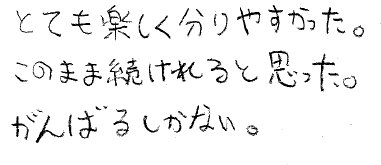 とても楽しく分りやすかった。
このまま続けれると思った。
がんばるしかない。